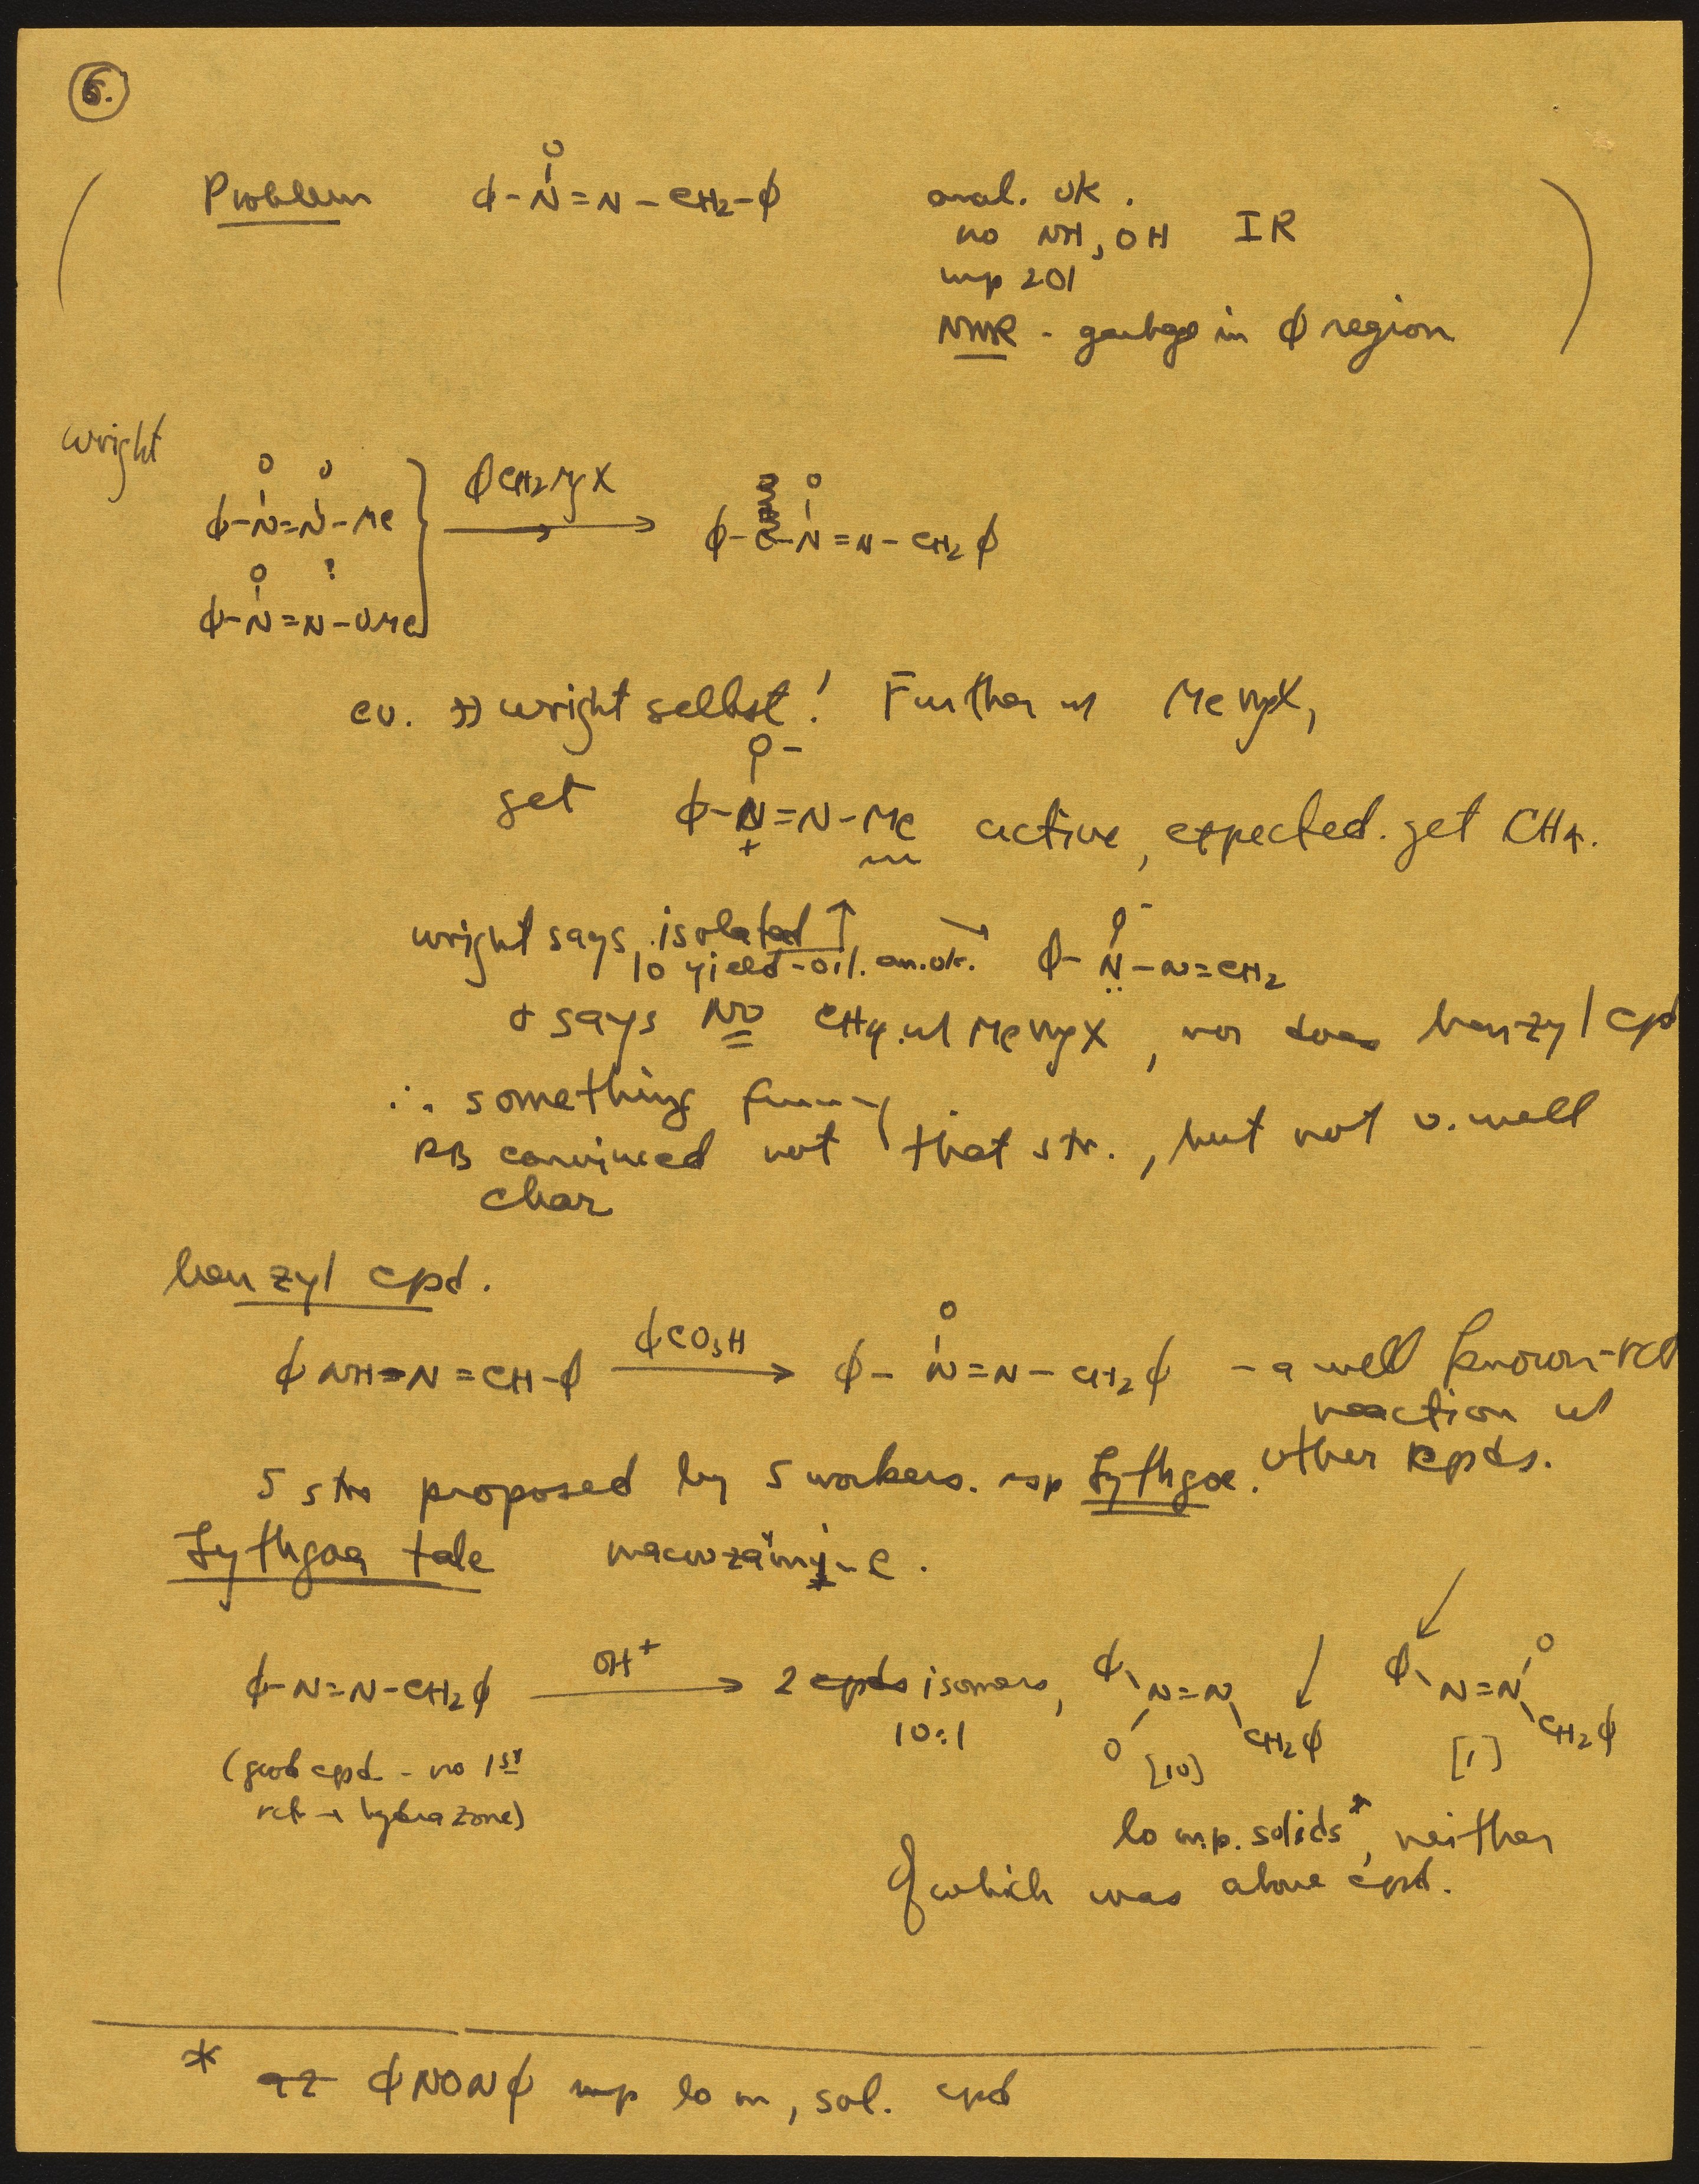 6.
Problem ϕ-N=N-CH2-ϕ anal. ok.
O
no NH, OH IR
mp 201
NMR - garbage in ϕ region
Wright
O O
ϕ-N=N-Me ϕCH2MgX
O
ϕ-N=N-CH2ϕ
O
ϕ-N=N-OMe
ev. Wright selbst! Further w MeMgX,
O-
get ϕ-N=N-Me active, expected. get CH4.
+
Wright says isolated ↑ → ϕ-N-N=CH2
O-
10 yield-oil. an.ok.
+ says NO CH4 w/ MeMgX, nor does benzyl cpd
∴ something funny
RB convinced not that str., but not v. well
char
benzyl cpd.
ϕNH-N=CH-ϕ ϕCO3H → ϕ-N=N-CH2ϕ - a well known
O
reaction w
other cpds.
5 strs proposed by 5 workers. esp Lythgoe.
Lythgoe tale macrozamin-e.
ϕ-N=N-CH2ϕ OH+ → 2 cpds isomers, ϕ N=N CH2ϕ O [10] ϕ N=N O CH2ϕ [1]
10:1
(good cpd - no 1st
rct → hydrazone)
lo m.p. solids*, neither
of which was above cpd.
* ϕNONϕ mp lo m, sol. cpd